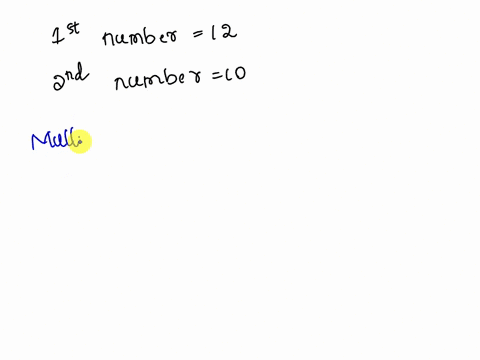 1st number = 12
2nd number = 10